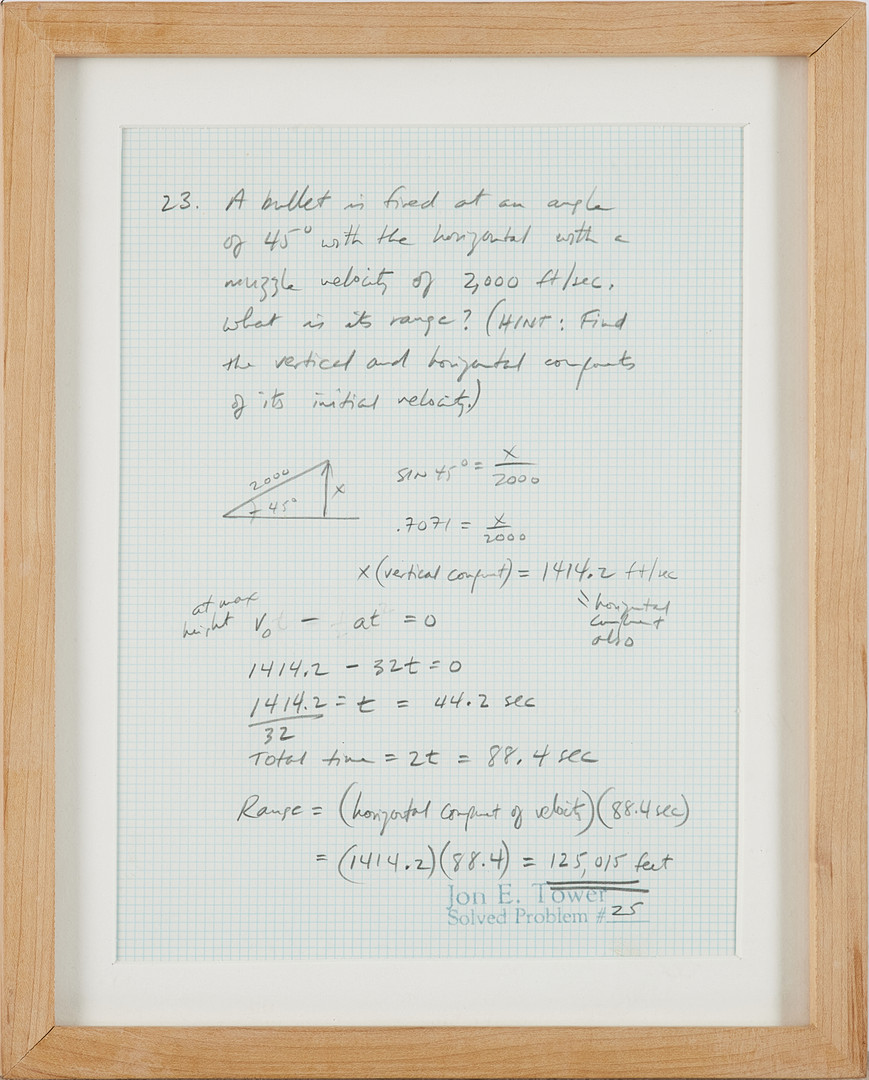 23. A bullet is fired at an angle
of 45° with the horizontal with a
muzzle velocity of 2,000 ft/sec.
what is its range? (HINT: Find
the vertical and horizontal components
of its initial velocity.)
2000
45°
x
SIN 45° = x/2000
.7071 = x/2000
x (vertical component) = 1414.2 ft/sec
= horizontal
component
also
at max
height
V₀ - at = 0
1414.2 - 32t = 0
1414.2/32 = t = 44.2 sec
Total time = 2t = 88.4 sec
Range = (horizontal component of velocity)(88.4 sec)
= (1414.2)(88.4) = 125,015 feet
Jon E. Tower
Solved Problem # 25